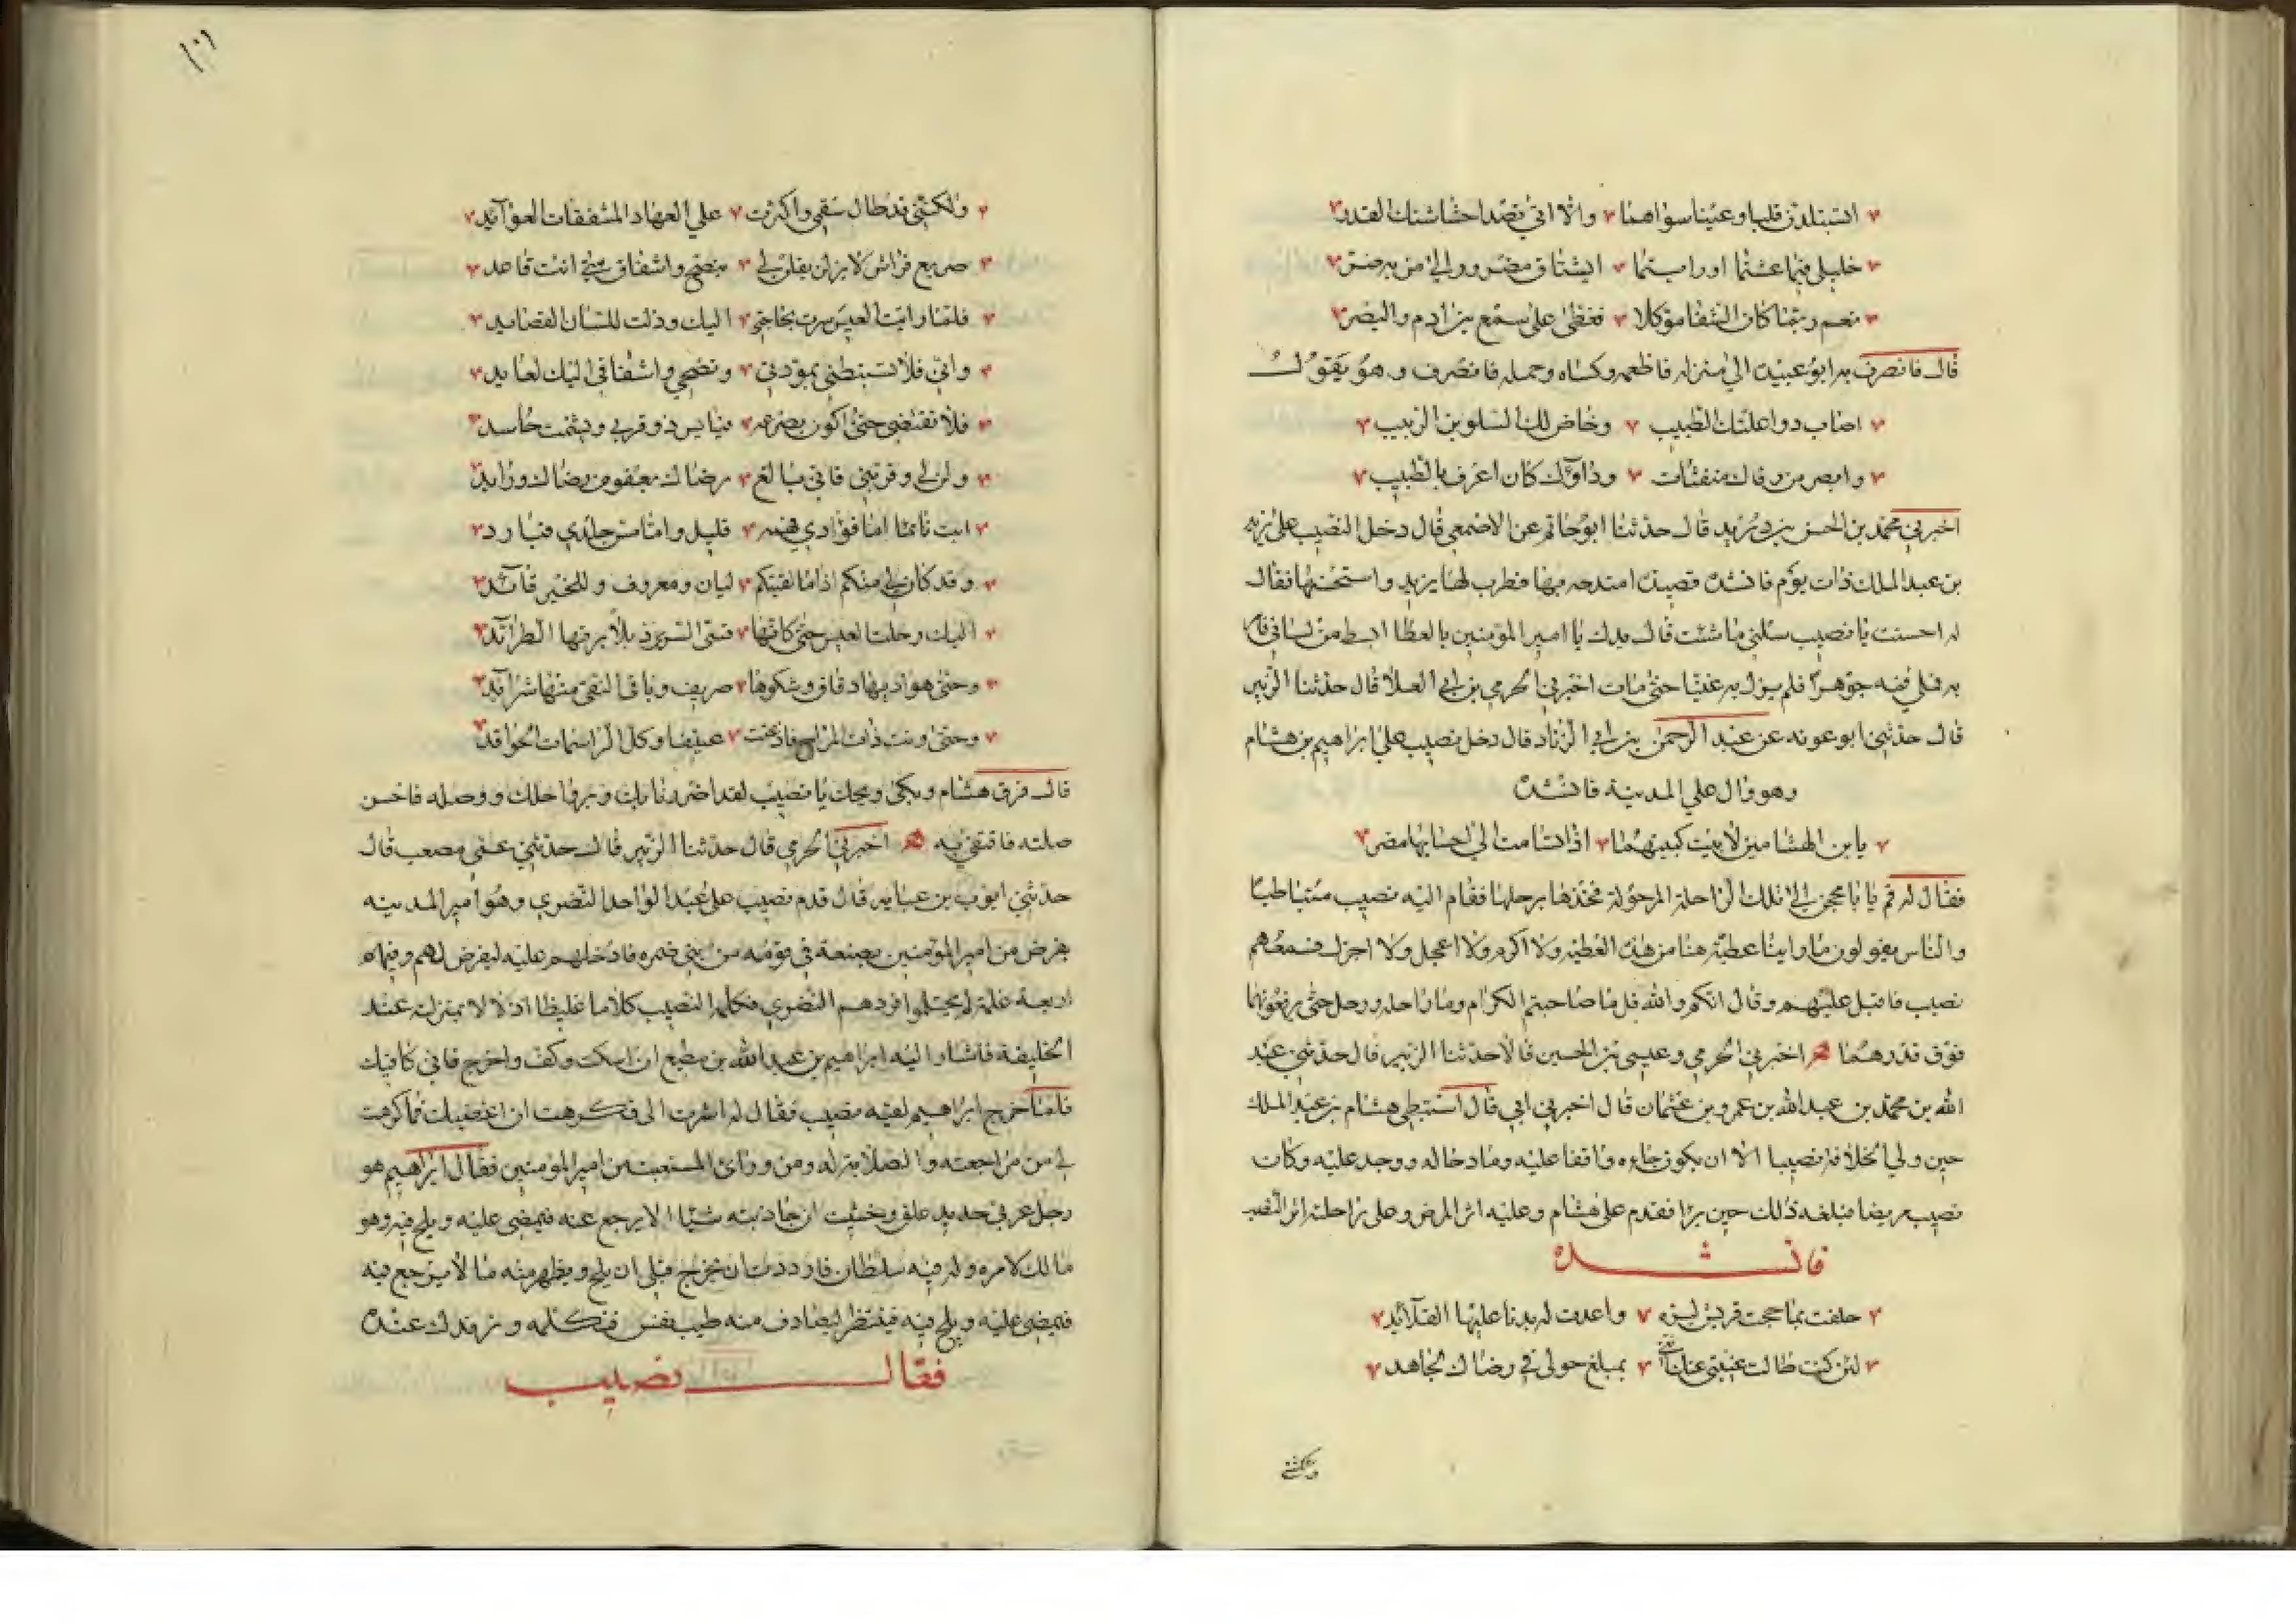 استبلدن قلبا وعينا سواهما والا اتى قصدا حشاشتك القدر
خليلي فيما عشتما او رايتما ايشتاق مضرور الى من به ضر
نعم ربما كان الشفا موكلا فغطى على سمع بن ادم والبصر
قال فانصرف به ابو عبيدت الى منزله فاطعمه وكساه وحمله فانصرف وهو يقول
اصاب دوا علتك الطبيب وخاض لك السلو بن الربيب
وابصر من رقاك منفثات وداوك كان اعرف بالطبيب
اخبرني محمد بن الحسن بن دريد قال حدثنا ابو حاتم عن الاصمعي قال دخل النصيب على يزيد
بن عبد الملك ذات يوم فانشده قصيدة امتدحه بها فطرب لها يزيد واستحسنها فقال
له احسنت يا نصيب سلني ما شئت قال يدك يا امير المؤمنين بالعطا ابسط من لساني فامر
به فملي فمه جوهرا فلم يزل به غنيا حتى مات اخبرني الحرمي بن ابي العلا قال حدثنا الزبير
قال حدثني ابو عونه عن عبد الرحمن بن ابي الزناد قال دخل نصيب على ابراهيم بن هشام
وهو وال علي المدينة فانشده
يا بن الهشامين لا بيت كبيتهما اذا تسامت الى احسابها مضر
فقال له قم يا با محجن الى تلك الراحلة المرحولة فخذها برحلها فقام اليه نصيب متباطيا
والناس يقولون ما راينا عطية هنا من هذه العطية ولا اكرم ولا اعجل ولا اجزل فسمعهم
نصيب فاقبل عليهم وقال انكم والله قل ما صاحبتم الكرام وما راحله ورحل حتى ترفعونهما
فوق قدرهما اخبرني الحرمي وعيسى بن الحسين قالا حدثنا الزبير قال حدثني عبد
الله بن محمد بن عبد الله بن عمرو بن عثمان قال اخبرني ابي قال استبطى هشام بن عبد الملك
حين ولي الخلافة نصيبا الا ان يكون جاءه وافدا عليه ومادحا له ووجد عليه وكان
نصيب مريضا فبلغه ذلك حين برا فقدم على هشام وعليه اثر المرض وعلى راحلته اثر النصب
فانشده
حلفت بما حجت قريش لبيته واهدت له بدنا عليها القلائد
لئن كنت طالت غيبتي عنك انني بمبلغ حولي في رضاك لجاهد
ولكنني
١٠٦
ولكنني قد طال سقمي واكثرت علي العهاد المشفقات العوائد
صريع فراش لا يزلن يقلن لي بنصح واشفاق متى انت قاعد
فلما رايت العيس سرت بحاجتي اليك وذلت للسان القصايد
واني فلا تستبطني بمودتي ونصحي واشفاقي اليك لعايد
فلا تقصني حتى اكون بصرعه فيايس ذو قربى ويشمت حاسد
ولن لي وقربني فاني بالغ رضاك بعفو من رضاك وزايد
ابت نائما اما فؤادي فهمه قليل واما مس جلدي فبارد
وقد كان لي منكم اذا ما لقيتكم ليان ومعروف وللخير قائد
اليك رحلت العيس حتى كانها قسى السرى ذبلا برتها الطرائد
وحتى هواديها دقاق وشكوها صريف وباقى النقى منها شرائد
وحتى ونت ذات المراح فاذعنت عيهنا وكل الراسمات الحوافد
قال فرق هشام وبكى وقال ويحك يا نصيب لقد اضررنا بك وبرواحلك ووصله فاحسن
صلته فاقتفى به اخبرني الحرمي قال حدثنا الزبير قال حدثني عمي مصعب قال
حدثني ايوب بن عبايه قال قدم نصيب على عبد الواحد النضري وهو امير المدينه
بفرض من امير المؤمنين يصنعه في قومه من بني ضمره فادخلهم عليه ليفرض لهم وفيهم
اربعة غلمة لم يحتلموا فردهم النضري فكلمه النصيب كلاما غليظا ادلالا بمنزلته عند
الخليفة فاشار اليه ابراهيم بن عبد الله بن مطيع ان اسكت وكف واخرج فاني كافيك
فلما خرج ابراهيم لقيه نصيب فقال له اشرت الى فكرهت ان اغضبك فما كرهت
لي من مراجعته والصلابة له ومن وراى المستعتب من امير المؤمنين فقال ابراهيم هو
رجل عربي حديد غلق وخشيت ان جاذبته شيئا الا يرجع عنه فيمضي عليه ويلح فيه وهو
مالك لامره وله فيه سلطان فاردت ان تخرج قبل ان يلح ويظهر منه ما لا يرجع فيه
فيمضي عليه ويلح فيه فينتظر ليصادف منه طيب نفس فتكلمه ونرفدك عنده
فقال نصيب